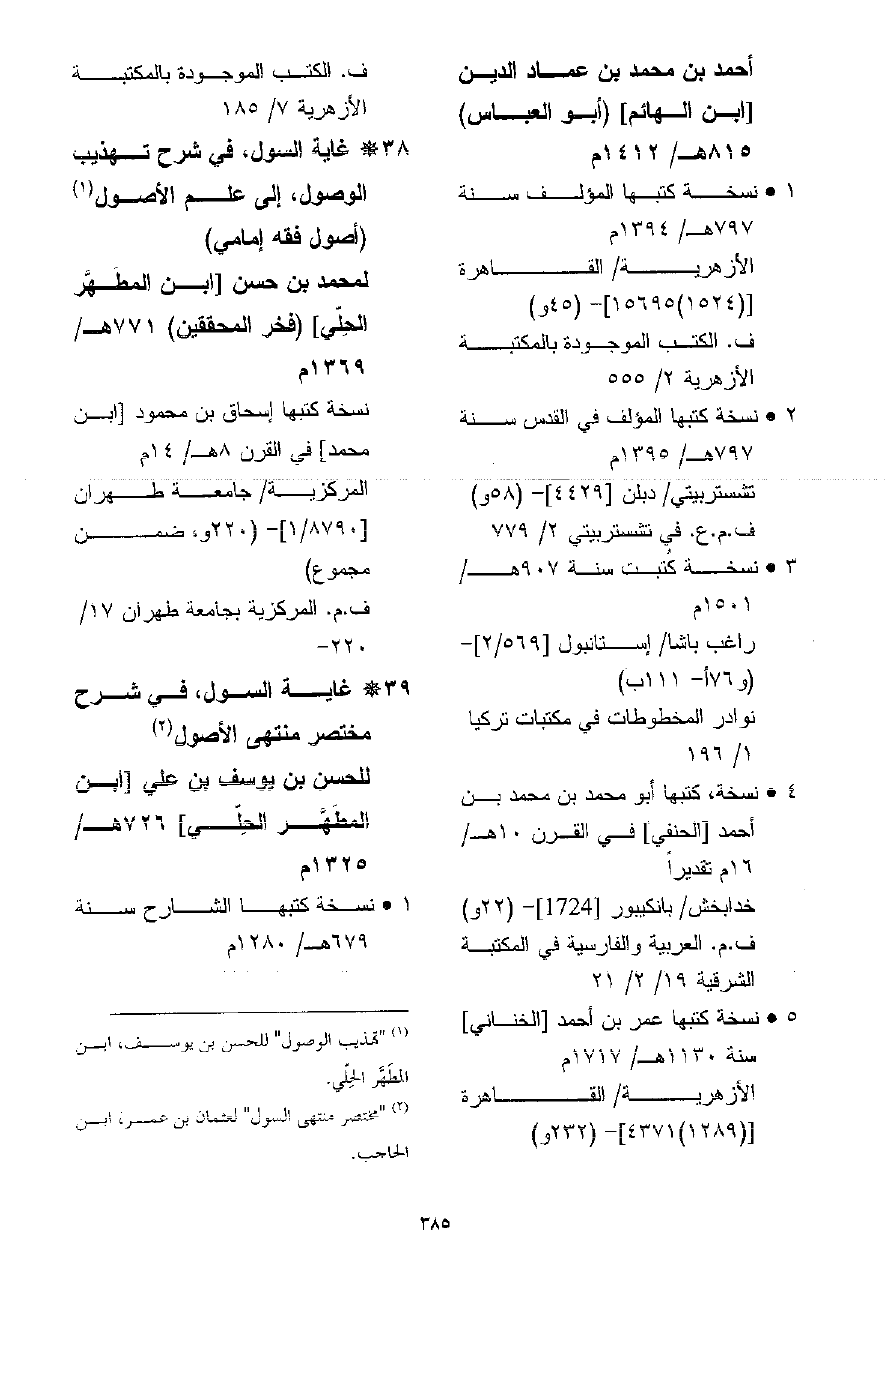 أحمد بن محمد بن عماد الدين
[ابن الهائم] (أبو العباس)
٨١٥هـ/ ١٤١٢م
١ • نسخة كتبها المؤلف سنة
٧٩٧هـ/ ١٣٩٤م
الأزهرية/ القاهرة
[(١٥٢٤)١٥٦٩٥]- (٤٥و)
ف. الكتب الموجودة بالمكتبة
الأزهرية ٢/ ٥٥٥
٢ • نسخة كتبها المؤلف في القدس سنة
٧٩٧هـ/ ١٣٩٥م
تشستربيتي/ دبلن [٤٤٢٩]- (٥٨و)
ف.م.ع. في تشستربيتي ٢/ ٧٧٩
٣ • نسخة كُتبت سنة ٩٠٧هـ/
١٥٠١م
راغب باشا/ إستانبول [٢/٥٦٩]-
(و٧٦أ- ١١١ب)
نوادر المخطوطات في مكتبات تركيا
١/ ١٩٦
٤ • نسخة، كتبها أبو محمد بن محمد بن
أحمد [الحنفي] في القرن ١٠هـ/
١٦م تقديراً
خدابخش/ بانكيبور [1724]- (٢٢و)
ف.م. العربية والفارسية في المكتبة
الشرقية ١٩/ ٢/ ٢١
٥ • نسخة كتبها عمر بن أحمد [الخناني]
سنة ١١٣٠هـ/ ١٧١٧م
الأزهرية/ القاهرة
[(١٢٨٩)٤٣٧١]- (٢٣٢و)
ف. الكتب الموجودة بالمكتبة
الأزهرية ٧/ ١٨٥
٣٨* غاية السول، في شرح تهذيب
الوصول، إلى علم الأصول(١)
(أصول فقه إمامي)
لمحمد بن حسن [ابن المطَهَّر
الحلّي] (فخر المحققين) ٧٧١هـ/
١٣٦٩م
نسخة كتبها إسحاق بن محمود [ابن
محمد] في القرن ٨هـ/ ١٤م
المركزية/ جامعة طهران
[١/٨٧٩٠]- (٢٢٠و، ضمن
مجموع)
ف.م. المركزية بجامعة طهران ١٧/
٢٢٠-
٣٩* غاية السول، في شرح
مختصر منتهى الأصول(٢)
للحسن بن يوسف بن علي [ابن
المطَهَّر الحلِّي] ٧٢٦هـ/
١٣٢٥م
١ • نسخة كتبها الشارح سنة
٦٧٩هـ/ ١٢٨٠م
(١) "تهذيب الوصول" للحسن بن يوسف، ابن
المطَهَّر الحِلّي.
(٢) "مختصر منتهى السول" لعثمان بن عمر، ابن
الحاجب.
٣٨٥